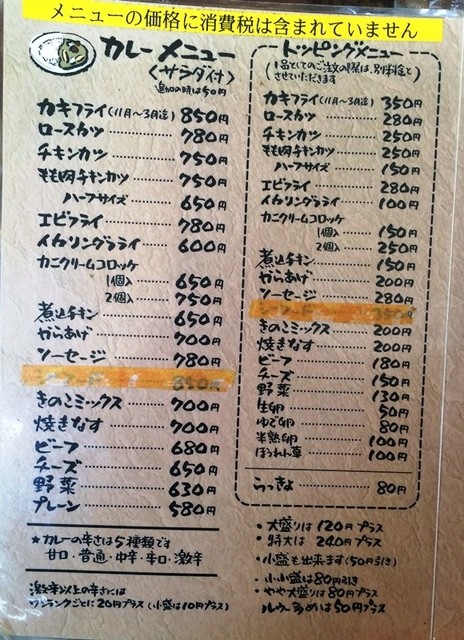 メニューの価格に消費税は含まれていません
カレーメニュー
〈サラダ付〉
追加の時は50円
カキフライ(11月～3月迄) 850円
ロースカツ 780円
チキンカツ 750円
もも肉チキンカツ 750円
ハーフサイズ 650円
エビフライ 780円
イカリングフライ 600円
カニクリームコロッケ
1個入 650円
2個入 750円
煮込チキン 650円
からあげ 700円
ソーセージ 780円
きのこミックス 700円
焼きなす 700円
ビーフ 680円
チーズ 650円
野菜 630円
プレーン 580円
★カレーの辛さは5種類です
甘口・普通・中辛・辛口・激辛
激辛以上の辛さには
ワンランクごとに20円プラス(小盛は10円プラス)
トッピングメニュー
(1品としてのご注文の際は、別料金と
させていただきます
カキフライ(11月～3月迄) 350円
ロースカツ 280円
チキンカツ 250円
もも肉チキンカツ 250円
ハーフサイズ 150円
エビフライ 280円
イカリングフライ 100円
カニクリームコロッケ
1個入 150円
2個入 250円
煮込チキン 150円
からあげ 200円
ソーセージ 280円
きのこミックス 200円
焼きなす 200円
ビーフ 180円
チーズ 150円
野菜 130円
生卵 50円
ゆで卵 80円
半熟卵 100円
ほうれん草 100円
らっきょ 80円
・大盛りは120円プラス
・特大は240円プラス
・小盛も出来ます(50円引き)
・小小盛は80円引き
・やや大盛りは80円プラス
ルウ多めは50円プラス